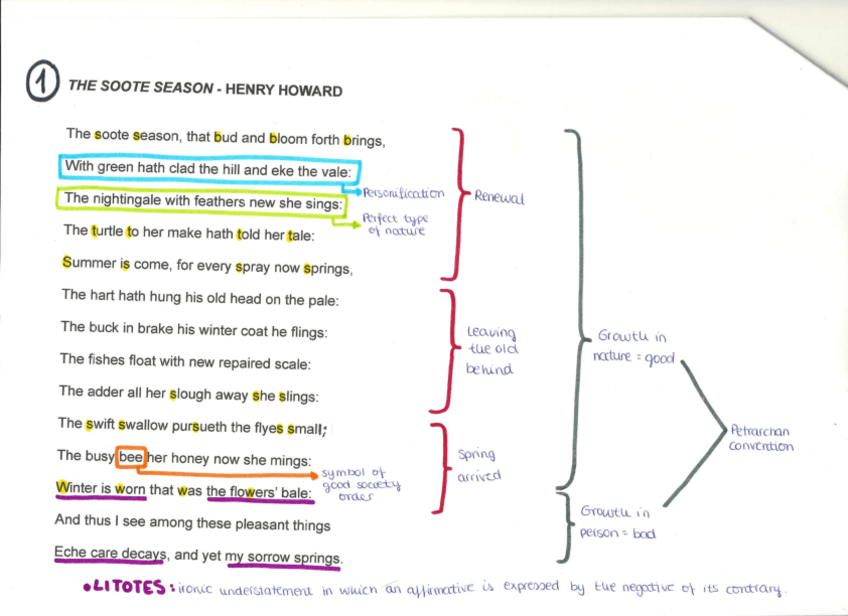 1
THE SOOTE SEASON - HENRY HOWARD
The soote season, that bud and bloom forth brings,
With green hath clad the hill and eke the vale:
Personification
The nightingale with feathers new she sings:
Perfect type
of nature
The turtle to her make hath told her tale:
Summer is come, for every spray now springs,
Renewal
The hart hath hung his old head on the pale:
The buck in brake his winter coat he flings:
The fishes float with new repaired scale:
The adder all her slough away she slings:
Leaving
the old
behind
The swift swallow pursueth the flyes small;
The busy bee her honey now she mings:
symbol of
good society
order
Winter is worn that was the flowers' bale:
Spring
arrived
Growth in
nature = good
And thus I see among these pleasant things
Eche care decays, and yet my sorrow springs.
Growth in
person = bad
Petrarchan
convention
•LITOTES: ironic understatement in which an affirmative is expressed by the negative of its contrary.